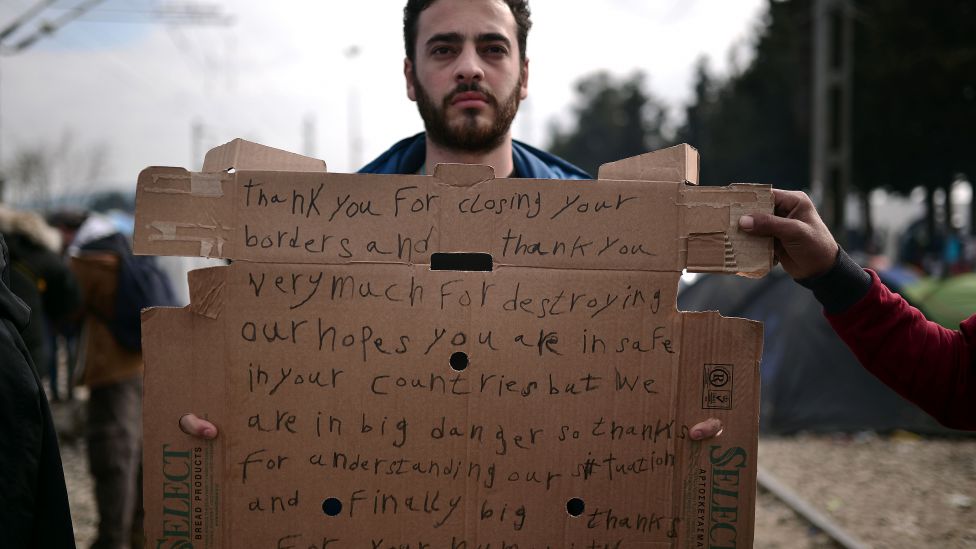 Thank you For closing your
borders and thank you
very much For destroying
our hopes you are in safe
in your countries but we
are in big danger so thanks
For understanding our situation
and Finally big thanks
For your hum
®
SELECT
BREAD PRODUCTS
SELECT
ΑΡΤΟΣΚΕΥΑΣΜ